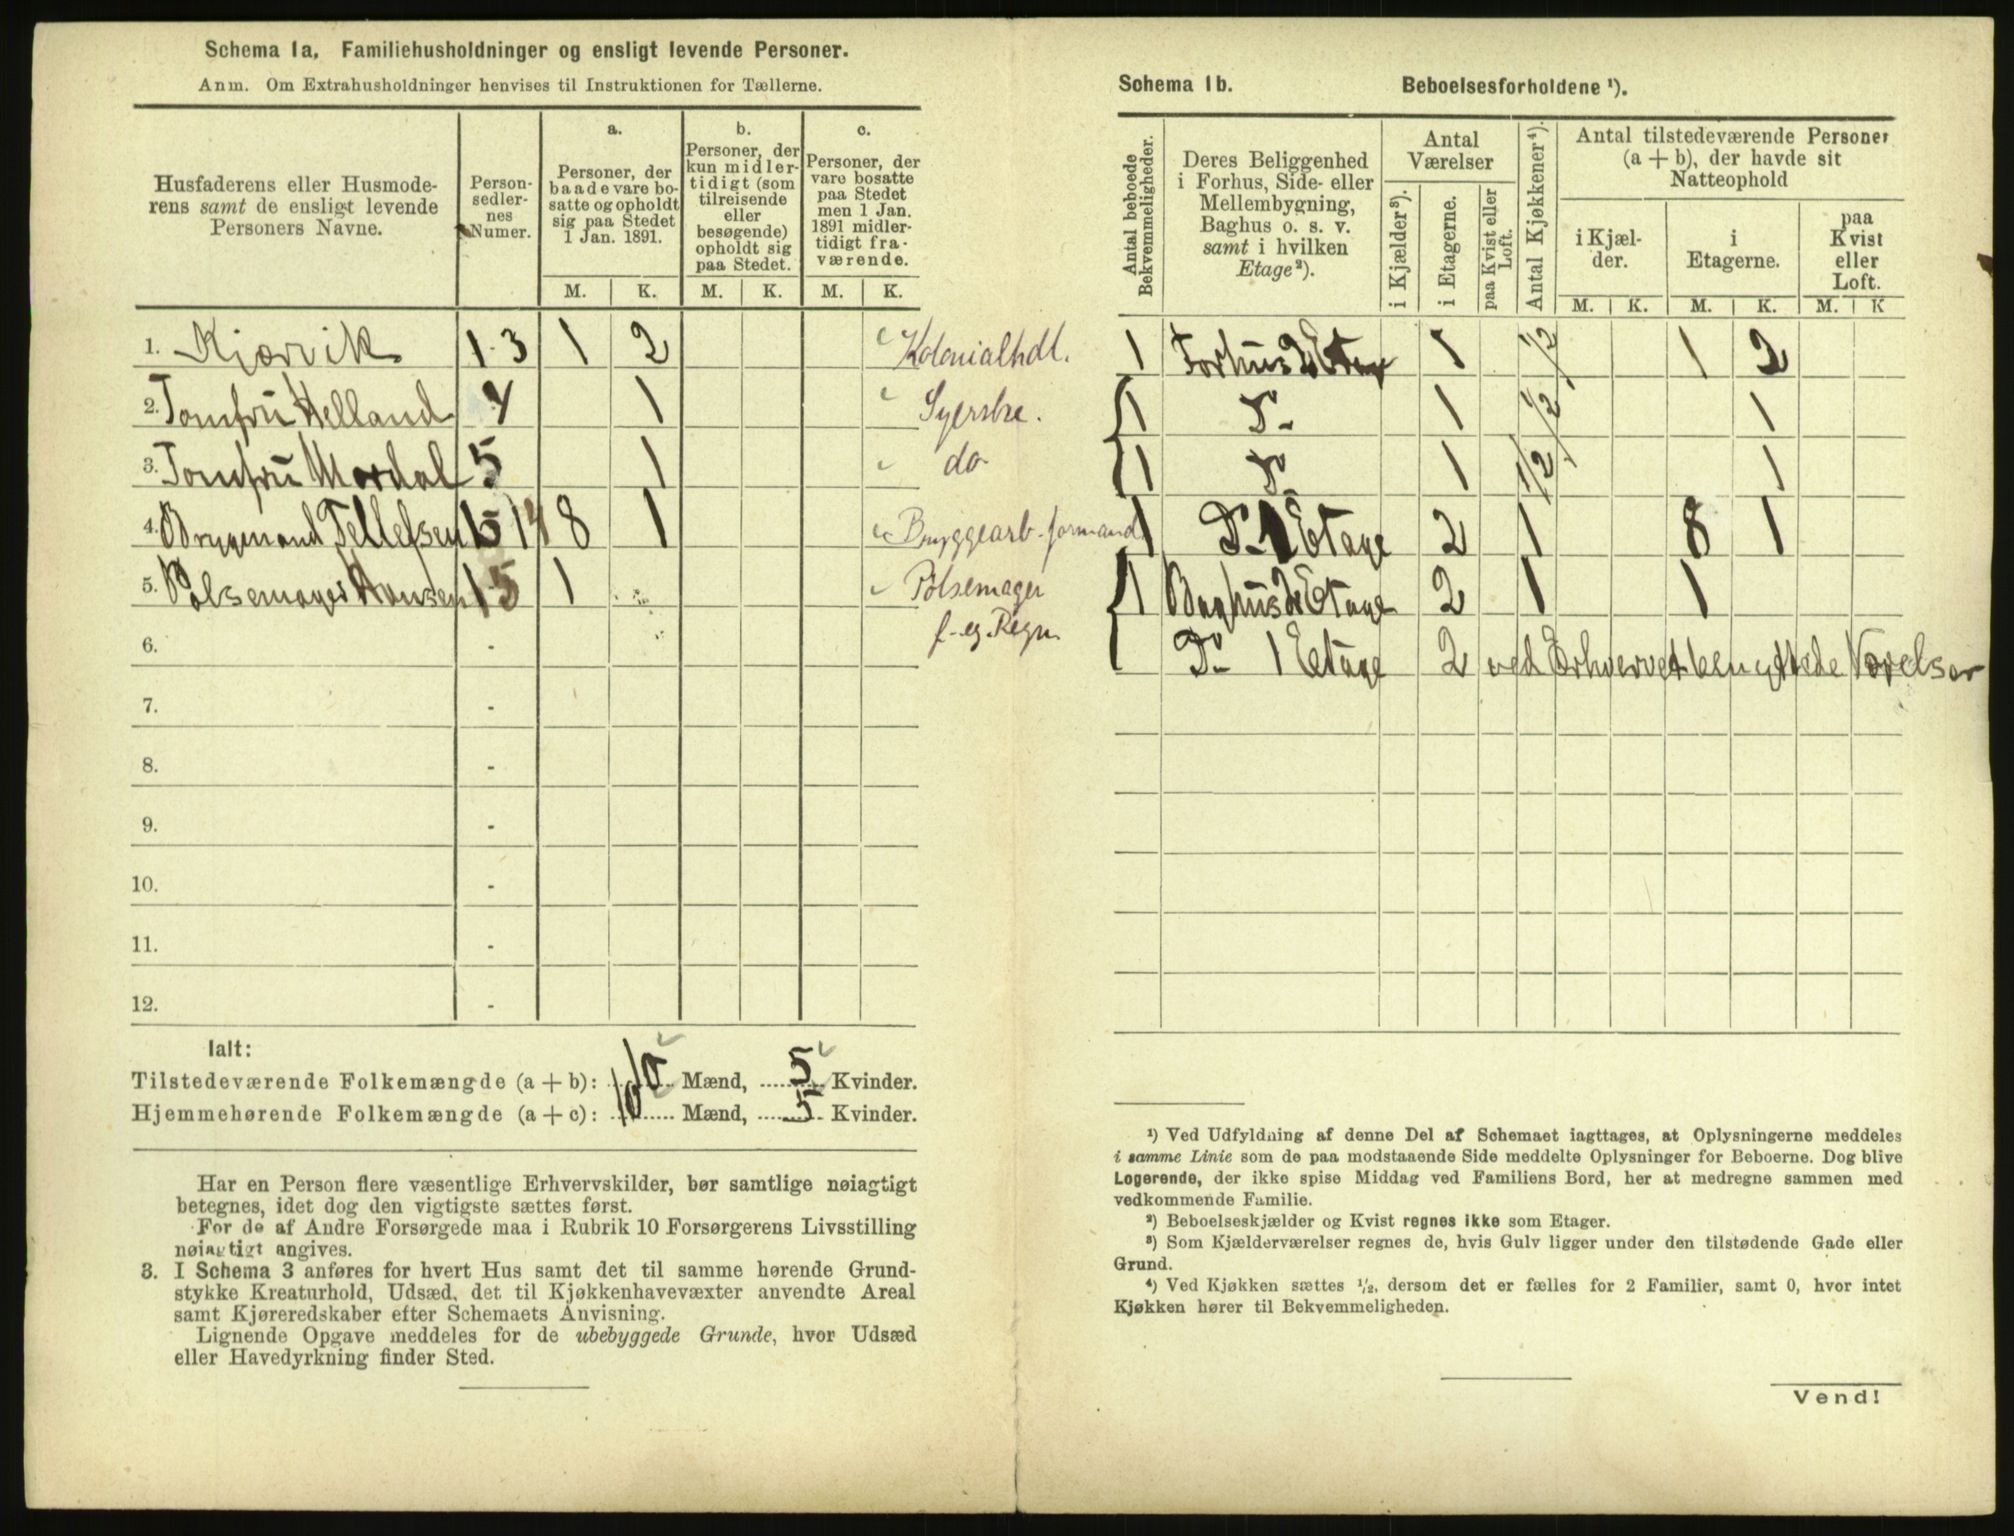 Schema 1a. Familiehusholdninger og ensligt levende Personer.
Anm. Om Extrahusholdninger henvises til Instruktionen for Tællerne.
Husfaderens eller Husmoderens samt de ensligt levende Personers Navne.
Personsedlernes Numer.
a.
Personer, der baade vare bosatte og opholdt sig paa Stedet 1 Jan. 1891.
b.
Personer, der kun midlertidigt (som tilreisende eller besøgende) opholdt sig paa Stedet.
c.
Personer, der vare bosatte paa Stedet men 1 Jan. 1891 midlertidigt fraværende.
M. K. M. K. M. K.
1. Kjørvik 1-3 1 2 Kolonialhdl.
2. Jomfru Helland 4 1 Syerske.
3. Jomfru Mordal 5 1 do
4. Bryggemand Tellefsen 14 8 1 Bryggearb.formand
5. Pølsemager Hansen 15 1 Pølsemager
f. eg. Regn.
6. -
7. -
8. -
9. -
10. -
11. -
12. -
Ialt:
Tilstedeværende Folkemængde (a + b): 10 Mænd, 5 Kvinder.
Hjemmehørende Folkemængde (a + c): 10 Mænd, 5 Kvinder.
Har en Person flere væsentlige Erhvervskilder, bør samtlige nøiagtigt
betegnes, idet dog den vigtigste sættes først.
For de af Andre Forsørgede maa i Rubrik 10 Forsørgerens Livsstilling
nøiagtigt angives.
3. I Schema 3 anføres for hvert Hus samt det til samme hørende Grund-
stykke Kreaturhold, Udsæd, det til Kjøkkenhavevæxter anvendte Areal
samt Kjøreredskaber efter Schemaets Anvisning.
Lignende Opgave meddeles for de ubebyggede Grunde, hvor Udsæd
eller Havedyrkning finder Sted.
Schema 1b. Beboelsesforholdene ¹).
Antal beboede Bekvemmeligheder.
Deres Beliggenhed i Forhus, Side- eller Mellembygning, Baghus o. s. v. samt i hvilken Etage²).
Antal Værelser
i Kjælder³).
i Etagerne.
paa Kvist eller Loft.
Antal Kjøkkener⁴).
Antal tilstedeværende Personer (a + b), der havde sit Natteophold
i Kjælder.
i Etagerne.
paa Kvist eller Loft.
M. K. M. K. M. K
1 Forhus 2 Etage 1 1/2 1 2
1 Do 1 1/2 1
1 Do 1 1/2 1
1 Do 1 Etage 2 1 8 1
1 Baghus 2 Etage 2 1 1
Do 1 Etage 2 ved Erhvervet benyttede Værelser
¹) Ved Udfyldning af denne Del af Schemaet iagttages, at Oplysningerne meddeles
i samme Linie som de paa modstaaende Side meddelte Oplysninger for Beboerne. Dog blive
Logerende, der ikke spise Middag ved Familiens Bord, her at medregne sammen med
vedkommende Familie.
²) Beboelseskjælder og Kvist regnes ikke som Etager.
³) Som Kjælderværelser regnes de, hvis Gulv ligger under den tilstødende Gade eller
Grund.
⁴) Ved Kjøkken sættes ½, dersom det er fælles for 2 Familier, samt 0, hvor intet
Kjøkken hører til Bekvemmeligheden.
Vend!